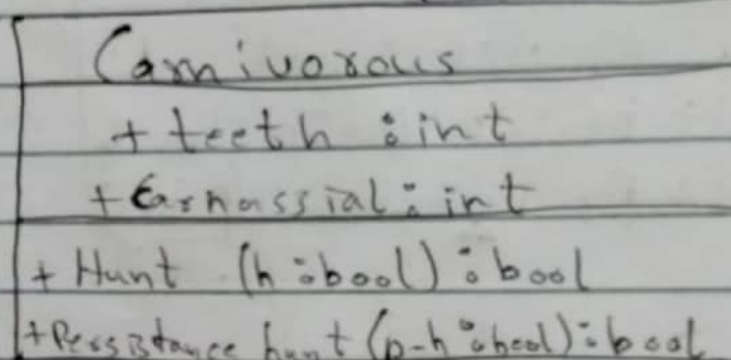 Carnivorous
+ teeth : int
+ Carnassial : int
+ Hunt (h : bool) : bool
+ Perssistance hunt (p-h : bool) : bool